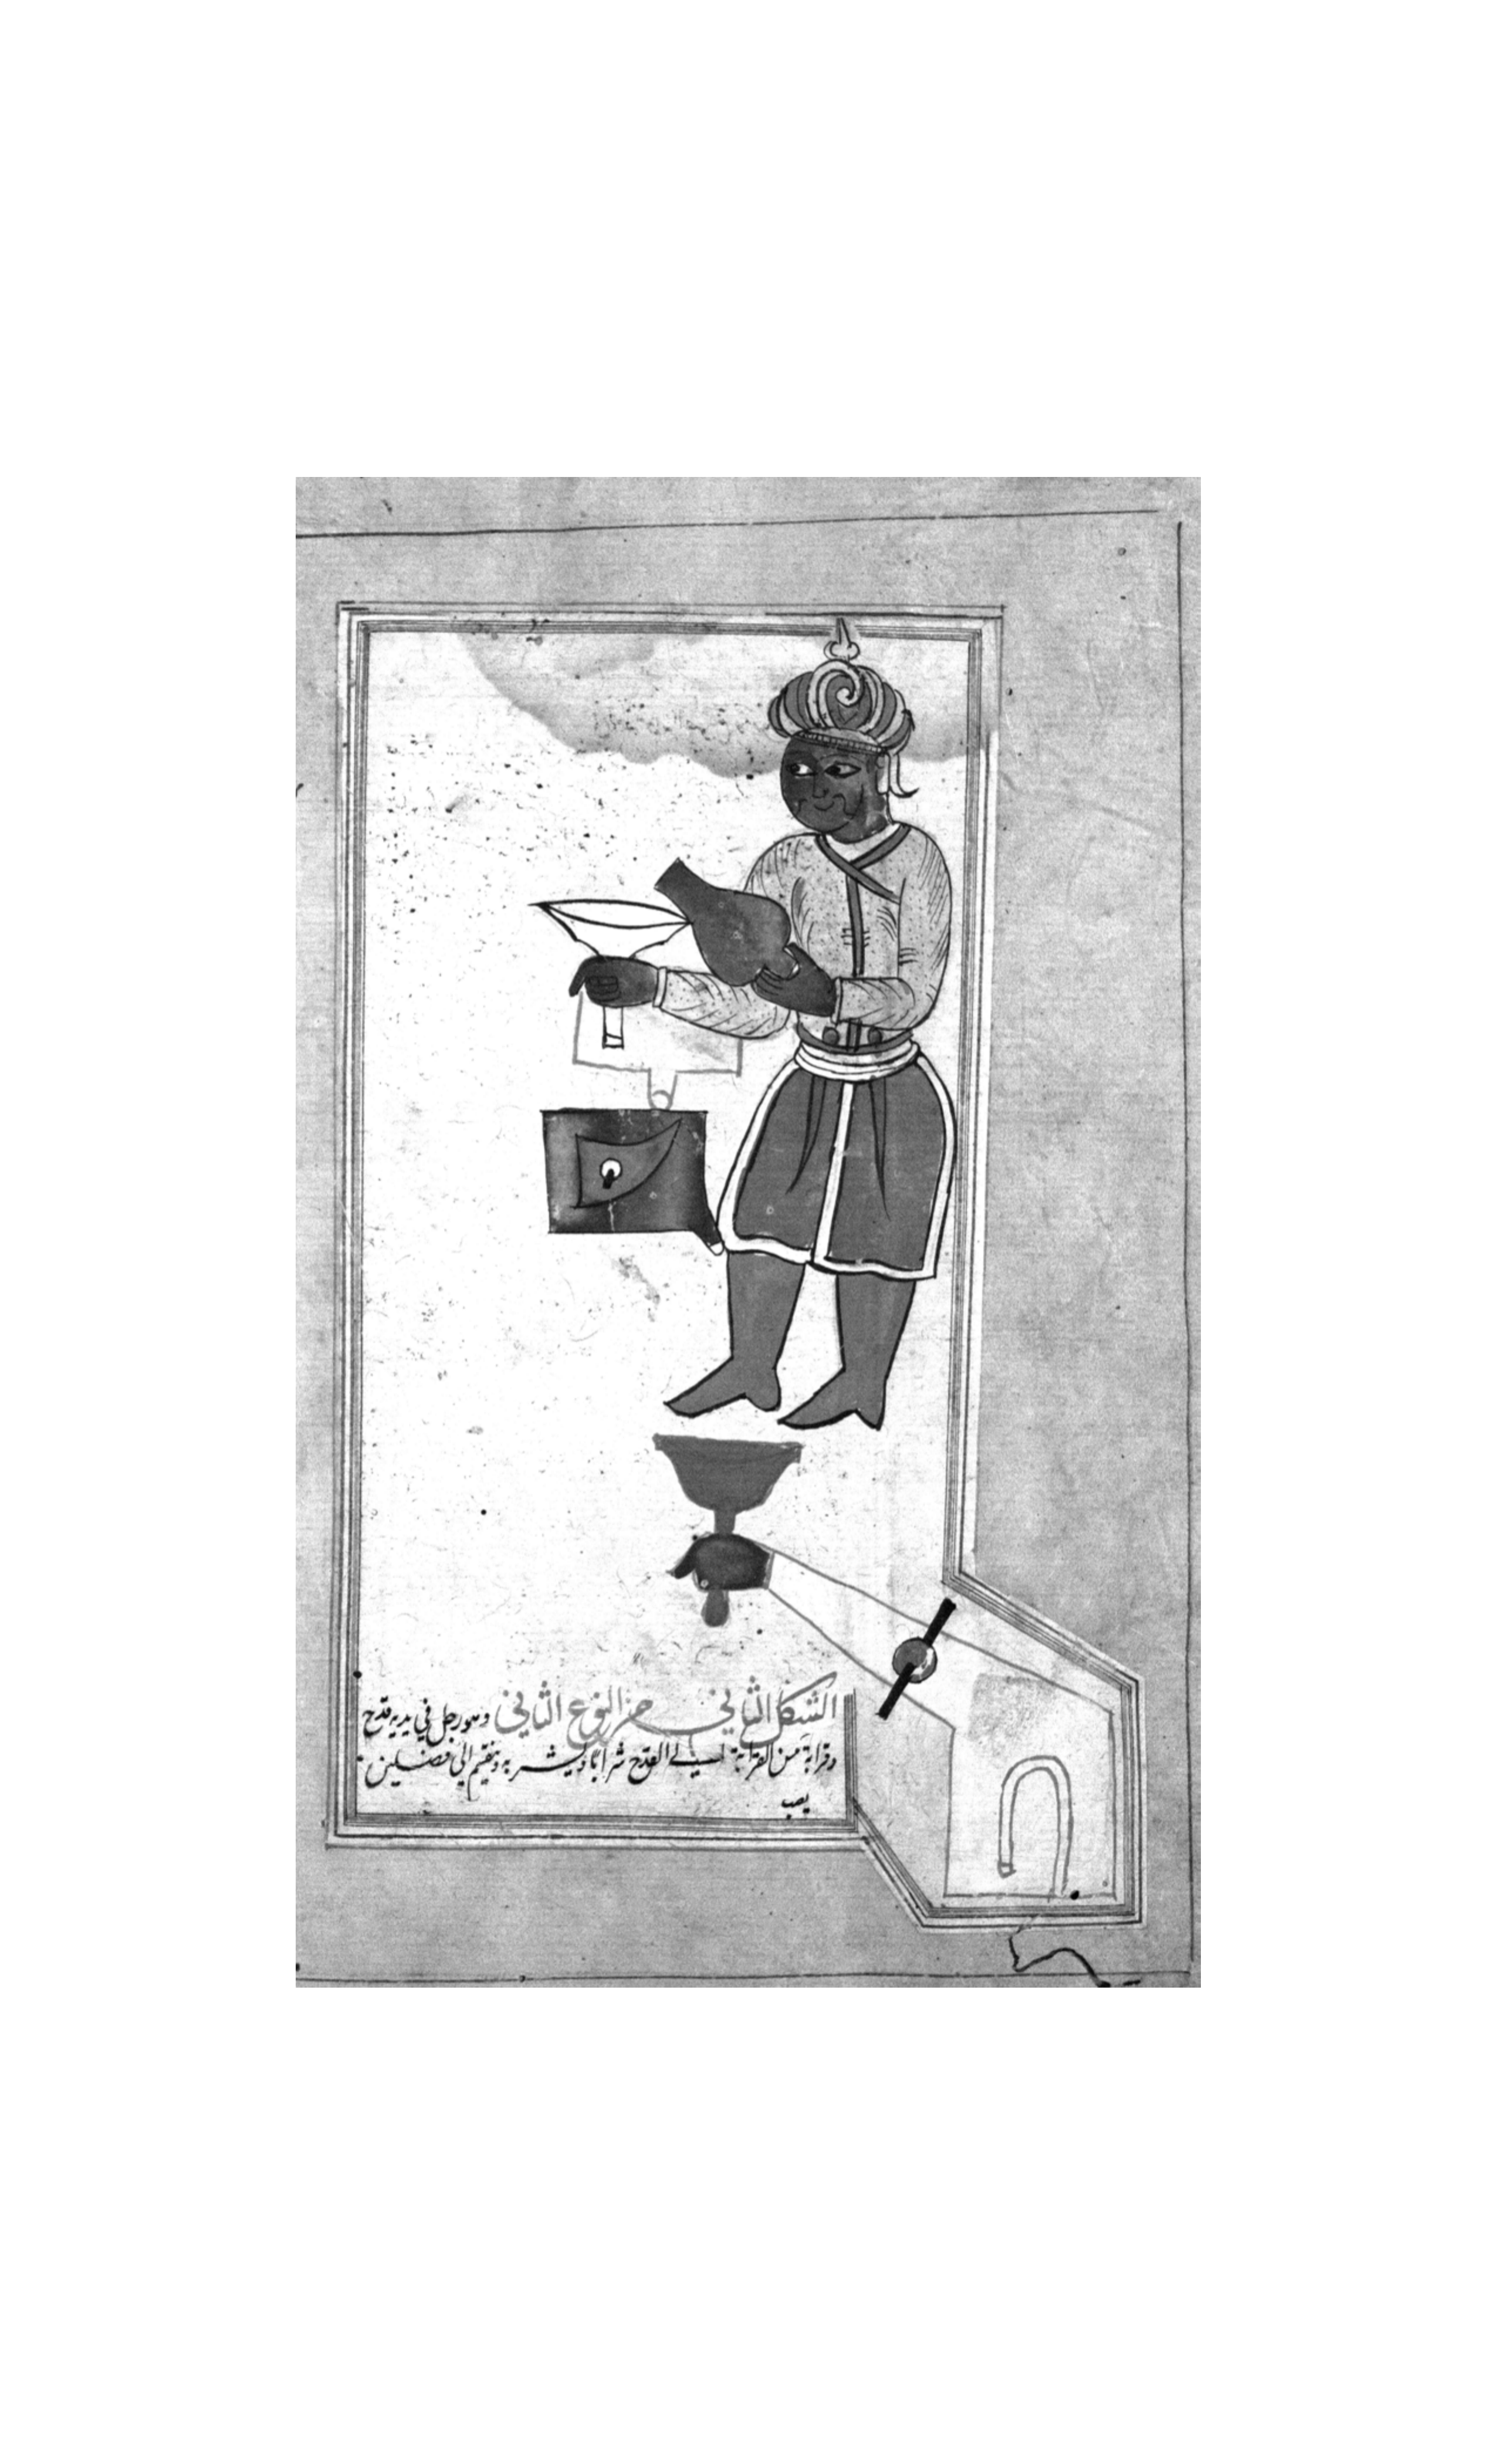 الشكل الثاني من النوع الثاني وهو رجل في يديه قدح
وقرابة من القرابة الي القدح شرابا ويشربه وينقسم الي فصلين
يصب